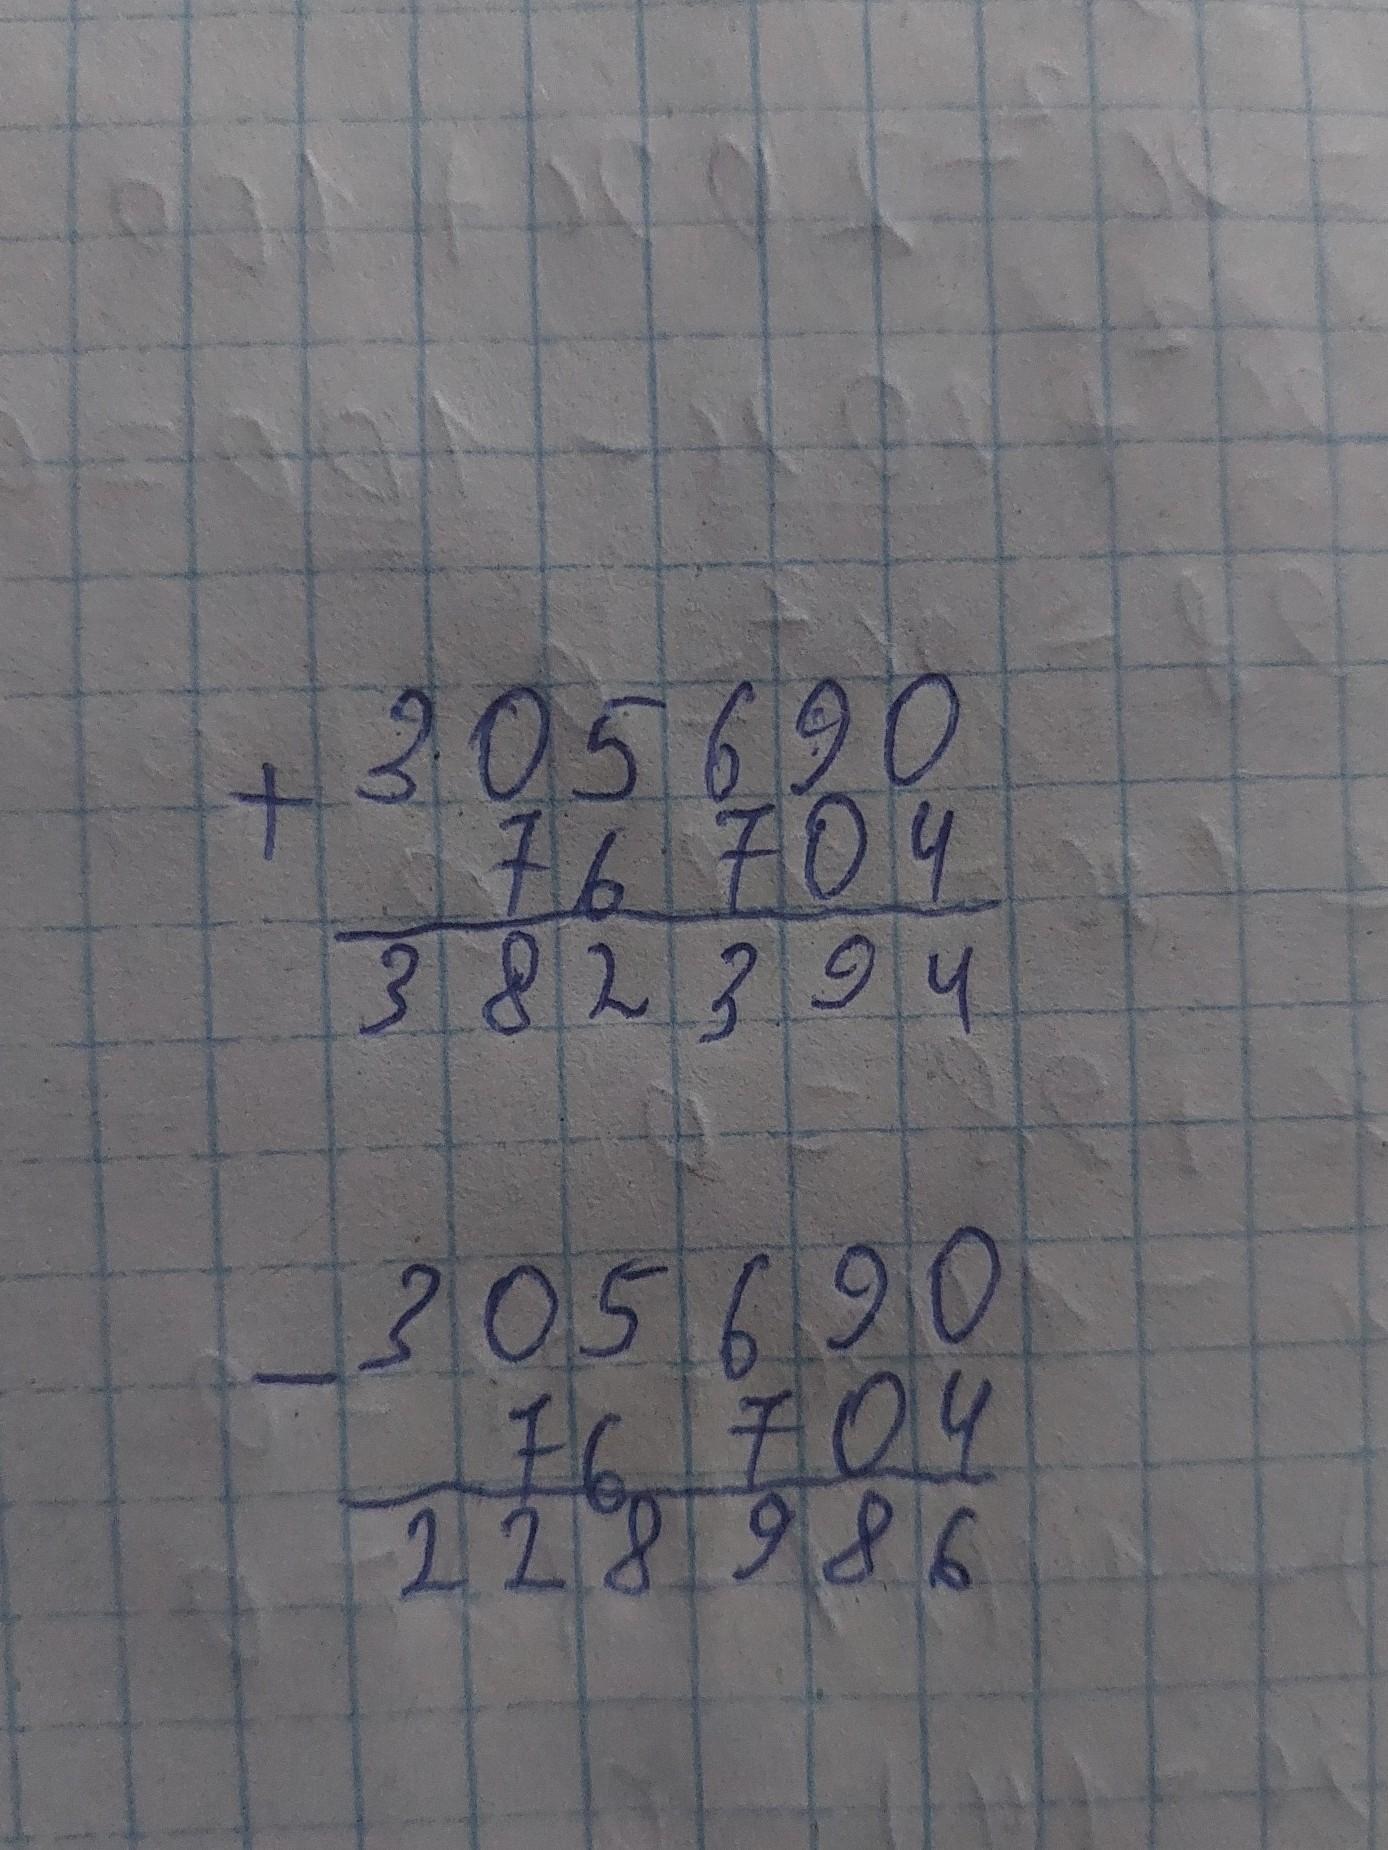 305690
+
76704
382394
305690
-
76704
228986